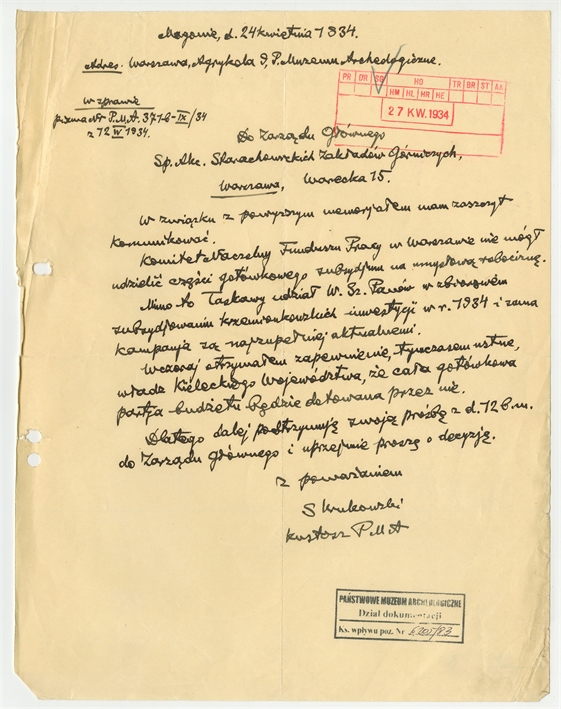 Magonie, d. 24 kwietnia 1934.
Adres. Warszawa, Agrykola 9, P. Muzeum Archeologiczne.
PR DR SG HO TR BR ST AA
HM HL HR HE
27 KW. 1934
w sprawie
pisma Nr P.M.A. 377b-IX/34
z 12 IV 1934.
Do Zarządu Głównego
Sp. Akc. Starachowickich Zakładów Górniczych,
Warszawa, Warecka 15.
W związku z powyższym memorjałem mam zaszczyt
komunikować.
Komitet Naczelny Funduszu Pracy w Warszawie nie mógł
udzielić części gotówkowego subsydjum na umysłową robociznę.
Mimo to łaskawy udział W. Sz. Panów w zbiorowem
subsydjowaniu krzemionkowskich inwestycji w r. 1934 i sama
kampanja są najzupełniej aktualnemi.
Wczoraj otrzymałem zapewnienie, tymczasem ustne,
władz Kieleckiego Województwa, że cała gotówkowa
partja budżetu będzie dotowana przez nie.
Dlatego dalej podtrzymuję swoją prośbę z d. 12 b.m.
do Zarządu Głównego i uprzejmie proszę o decyzję.
z poważaniem
S Krukowski
kustosz P.M.A
PAŃSTWOWE MUZEUM ARCHEOLOGICZNE
Dział dokumentacji
Ks. wpływu poz. Nr